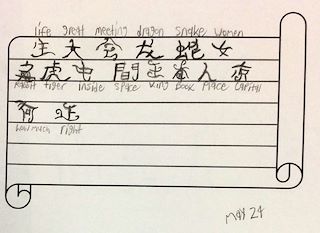 life great meeting dragon snake women
生 大 会 友 蛇 女
虎 中 間 本 人 京
Rabbit tiger inside space King Book Place Capital
正
how much right
May 24